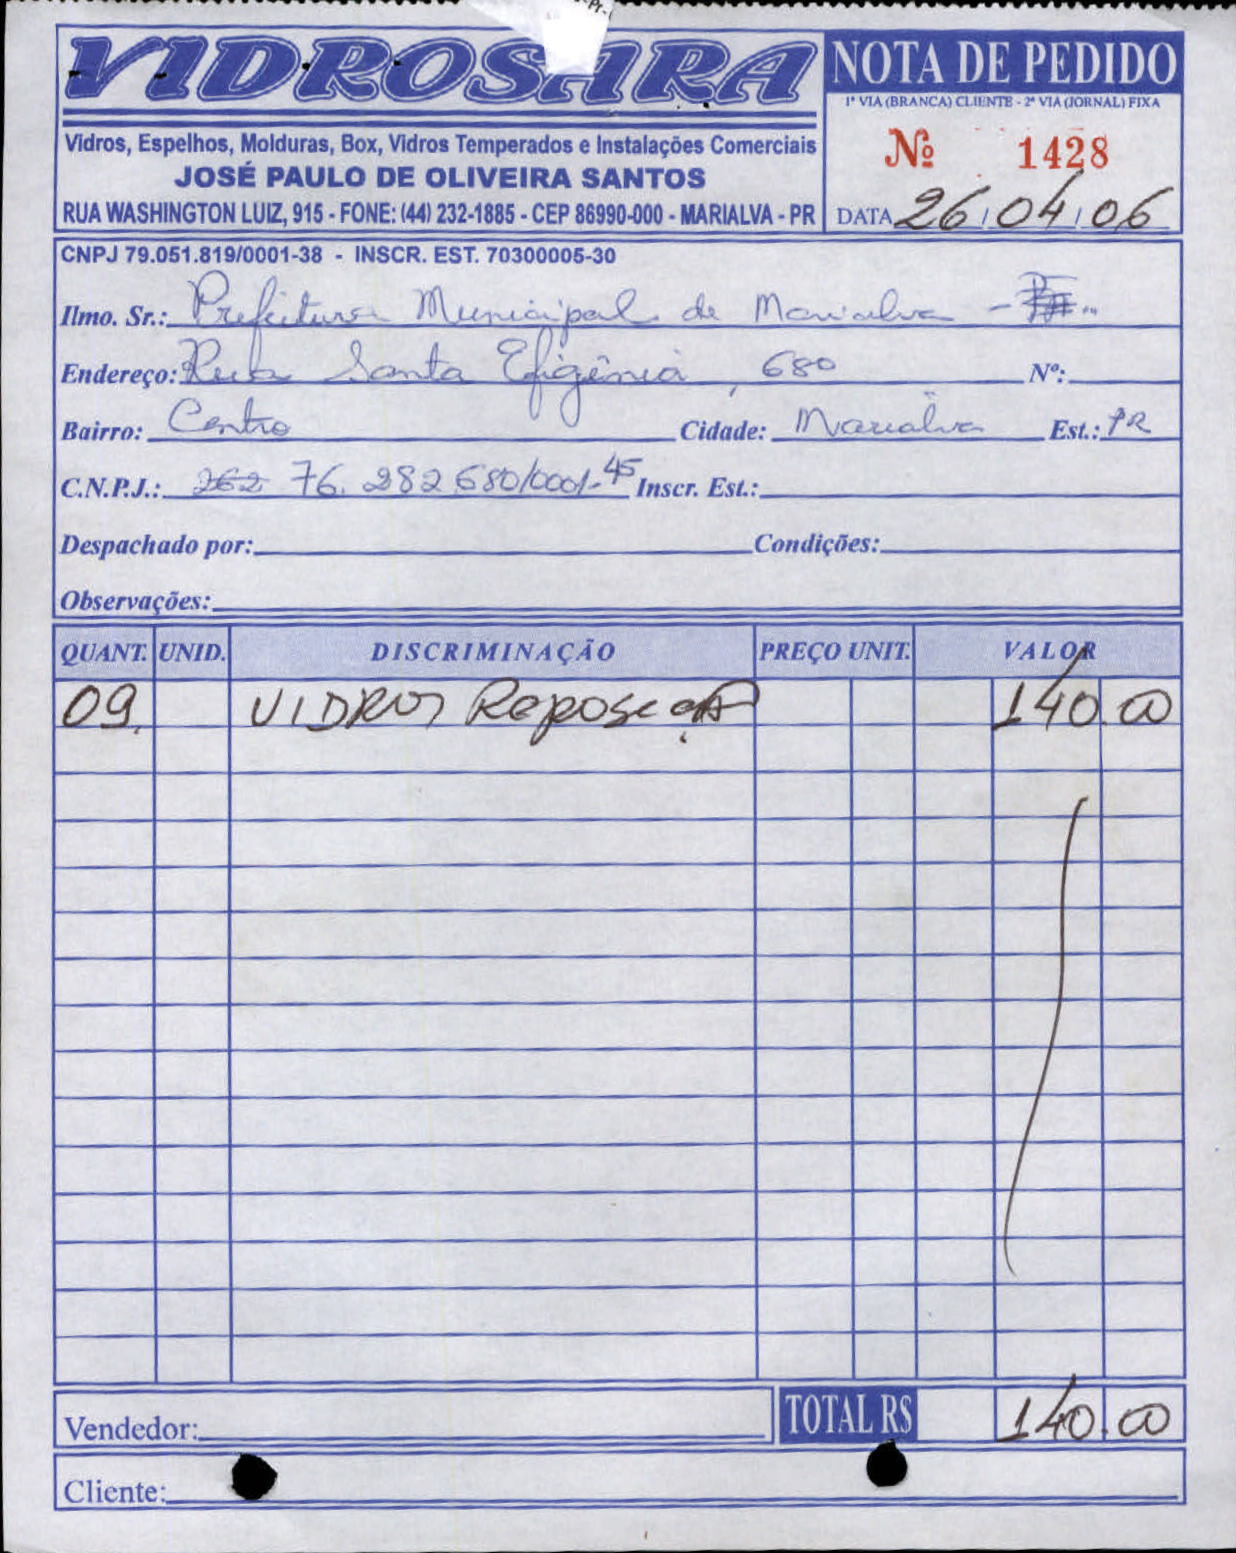 VIDROSARA
NOTA DE PEDIDO
1ª VIA (BRANCA) CLIENTE - 2ª VIA (JORNAL) FIXA
Vidros, Espelhos, Molduras, Box, Vidros Temperados e Instalações Comerciais
JOSÉ PAULO DE OLIVEIRA SANTOS
RUA WASHINGTON LUIZ, 915 - FONE: (44) 232-1885 - CEP 86990-000 - MARIALVA - PR
Nº 1428
DATA 26/04/06
CNPJ 79.051.819/0001-38 - INSCR. EST. 70300005-30
Ilmo. Sr.: Prefeitura Municipal de Marialva -
Endereço: Rua Santa Efigênia, 680 Nº:
Bairro: Centro Cidade: Marialva Est.: PR
C.N.P.J.: 262 76.282680/0001-45 Inscr. Est.:
Despachado por: Condições:
Observações:
QUANT. UNID. DISCRIMINAÇÃO PREÇO UNIT. VALOR
09. VIDROS Reposição 140.00
Vendedor: TOTAL R$ 140.00
Cliente: